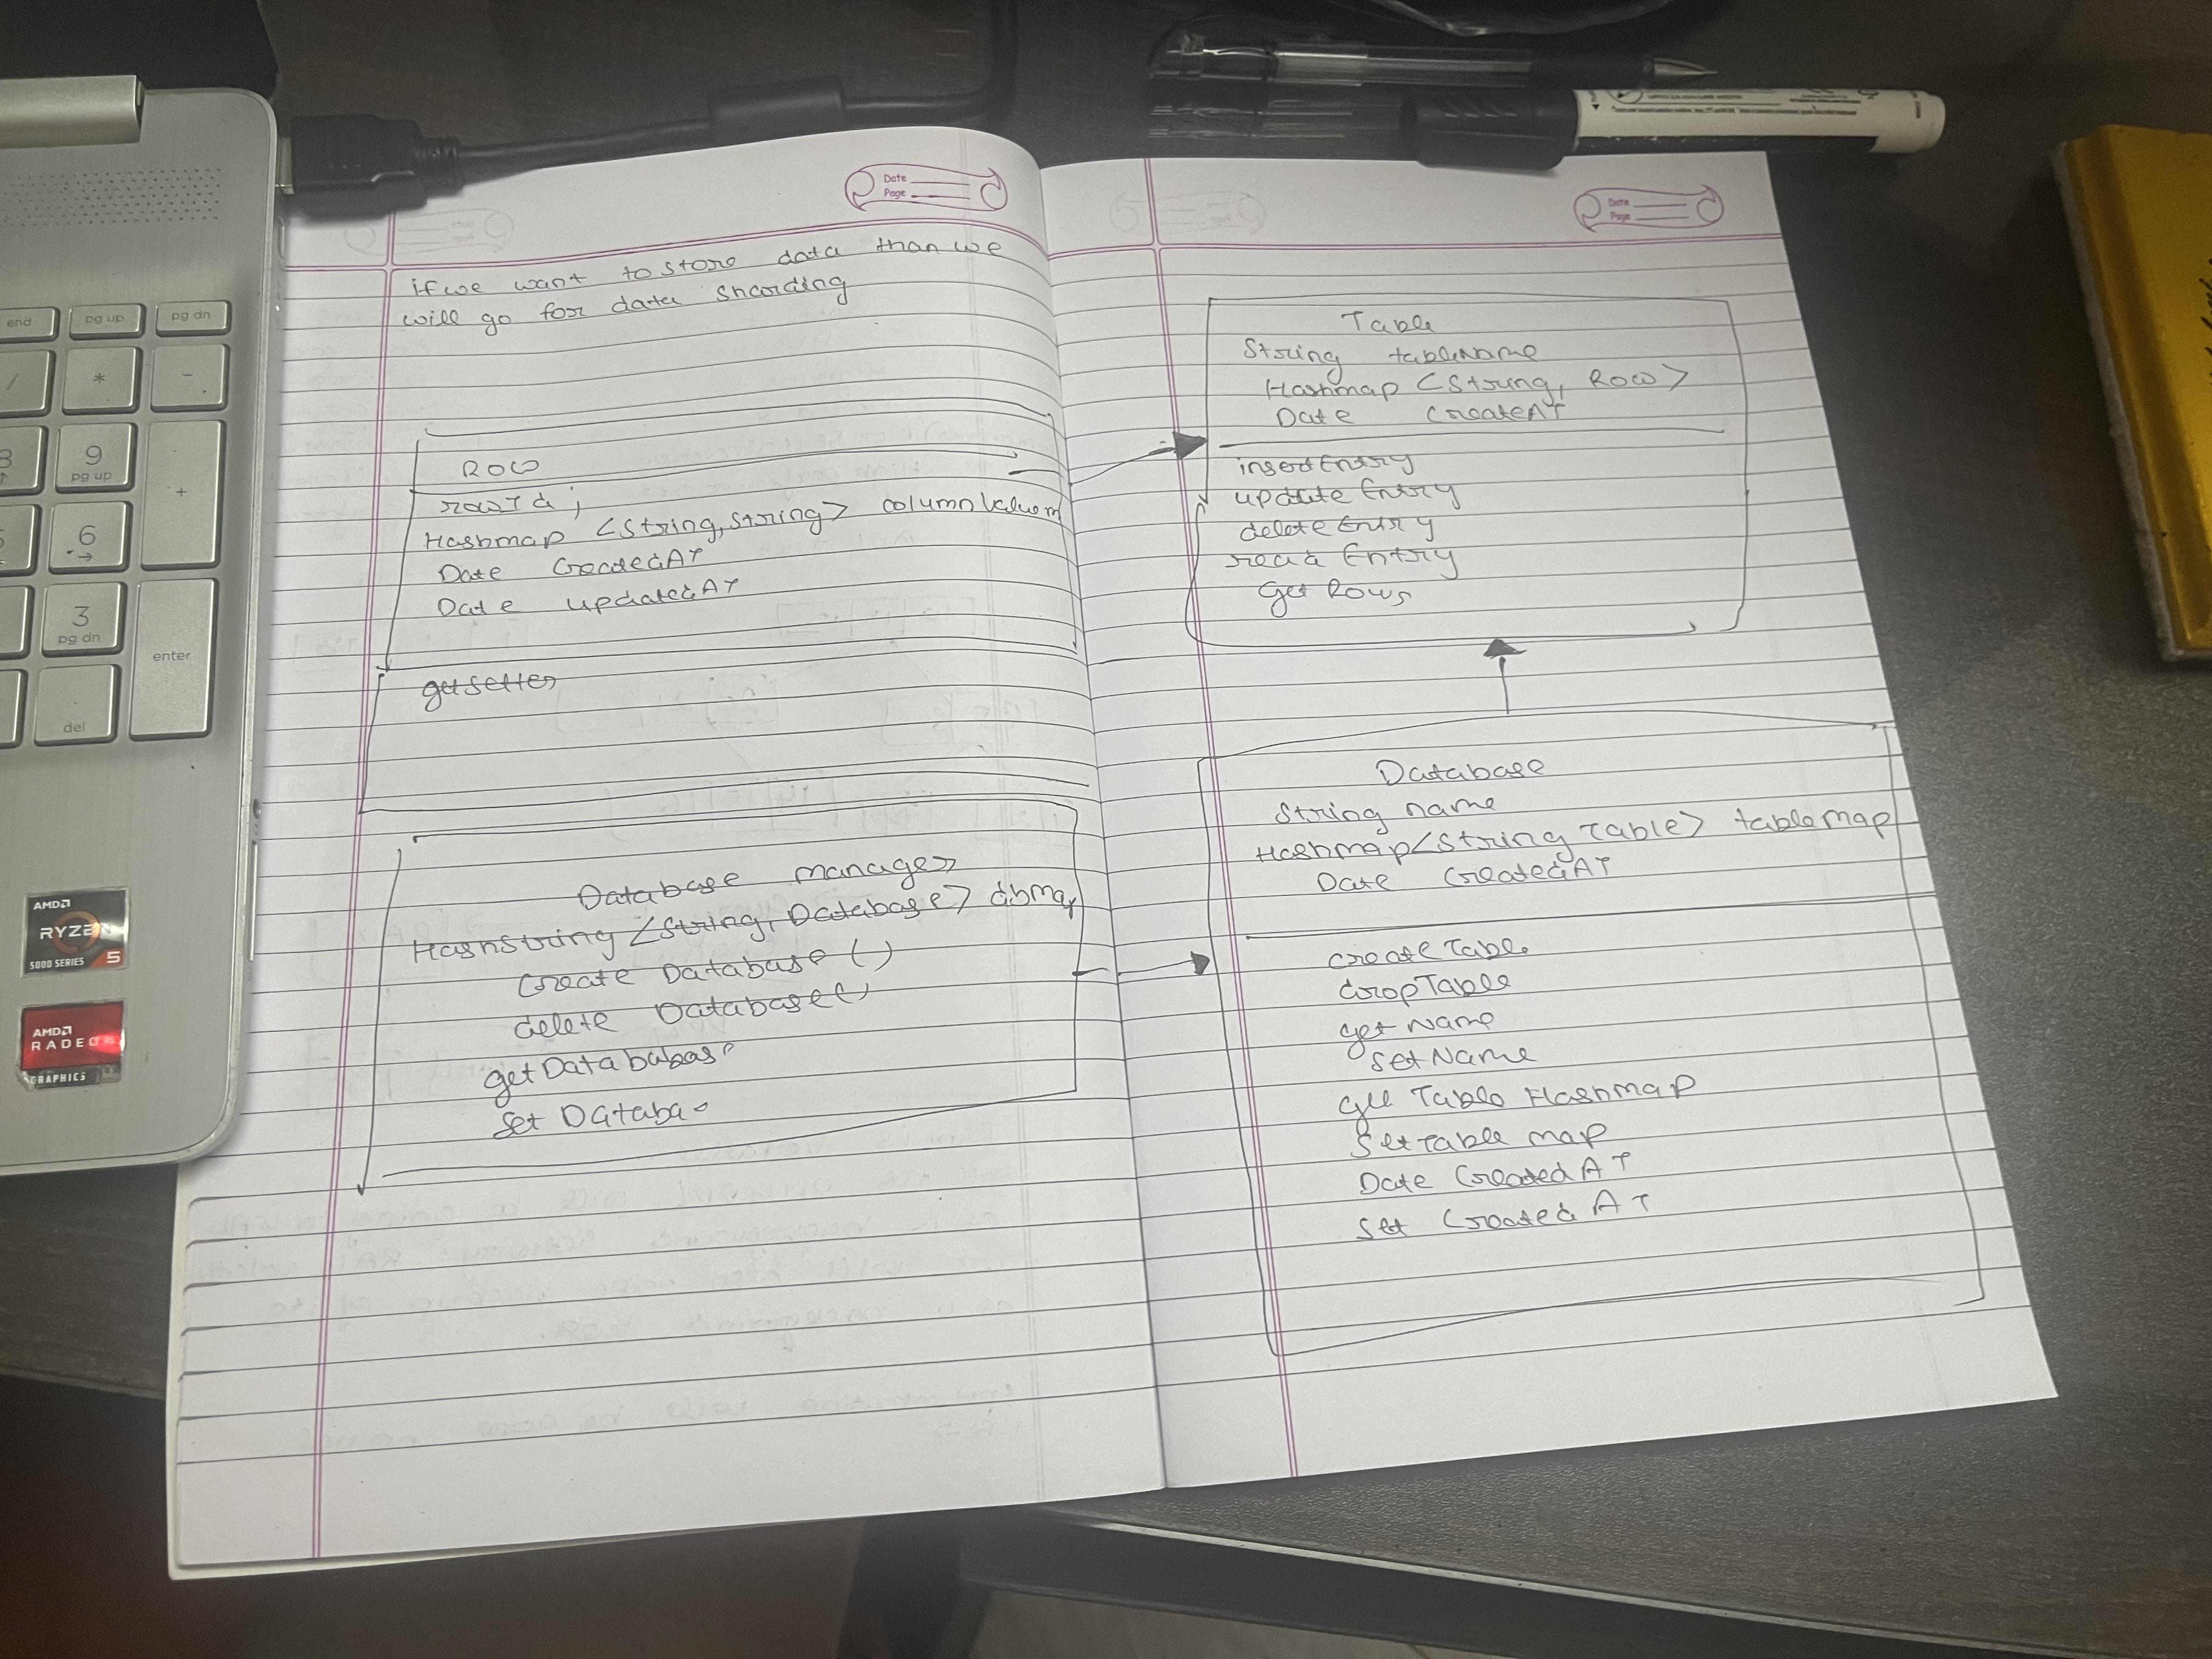 end
pg up
pg dn
/
*
-
9
pg up
+
6
3
pg dn
enter
del
AMD
RYZEN
5000 SERIES 5
AMD
RADEON
GRAPHICS
Date
Page
if we want to store data than we
will go for data sharding
Row
rowId;
Hashmap <String, String> column
Date CreatedAT
Date updatedAT
getsetter
Database manager
HashString <String, Database> dbMap
Create Database ()
delete Database()
getDatababase
Set Databa
Date
Page
Table
String tableName
Hashmap <String, Row>
Date CreateAT
insertEntry
update Entry
delete Entry
read Entry
get Rows
Database
String name
Hashmap<String Table> tablemap
Date CreatedAT
Create Table
dropTable
get Name
set Name
get Table Hashmap
Set Table map
Date Created AT
Set Created AT